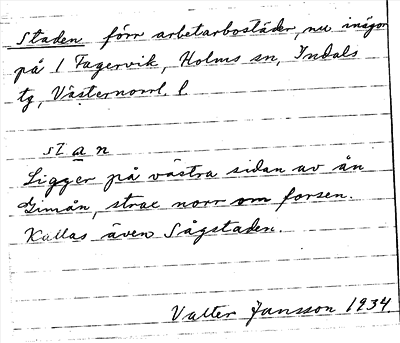 Staden förr arbetarbostäder, nu inägor
på 1 Fagervik, Holms sn, Indals
tg, Västernorrl. l.
stan
Ligger på västra sidan av ån
Gimån, strax norr om forsen.
Kallas även Sågstaden.
Valter Jansson 1934.